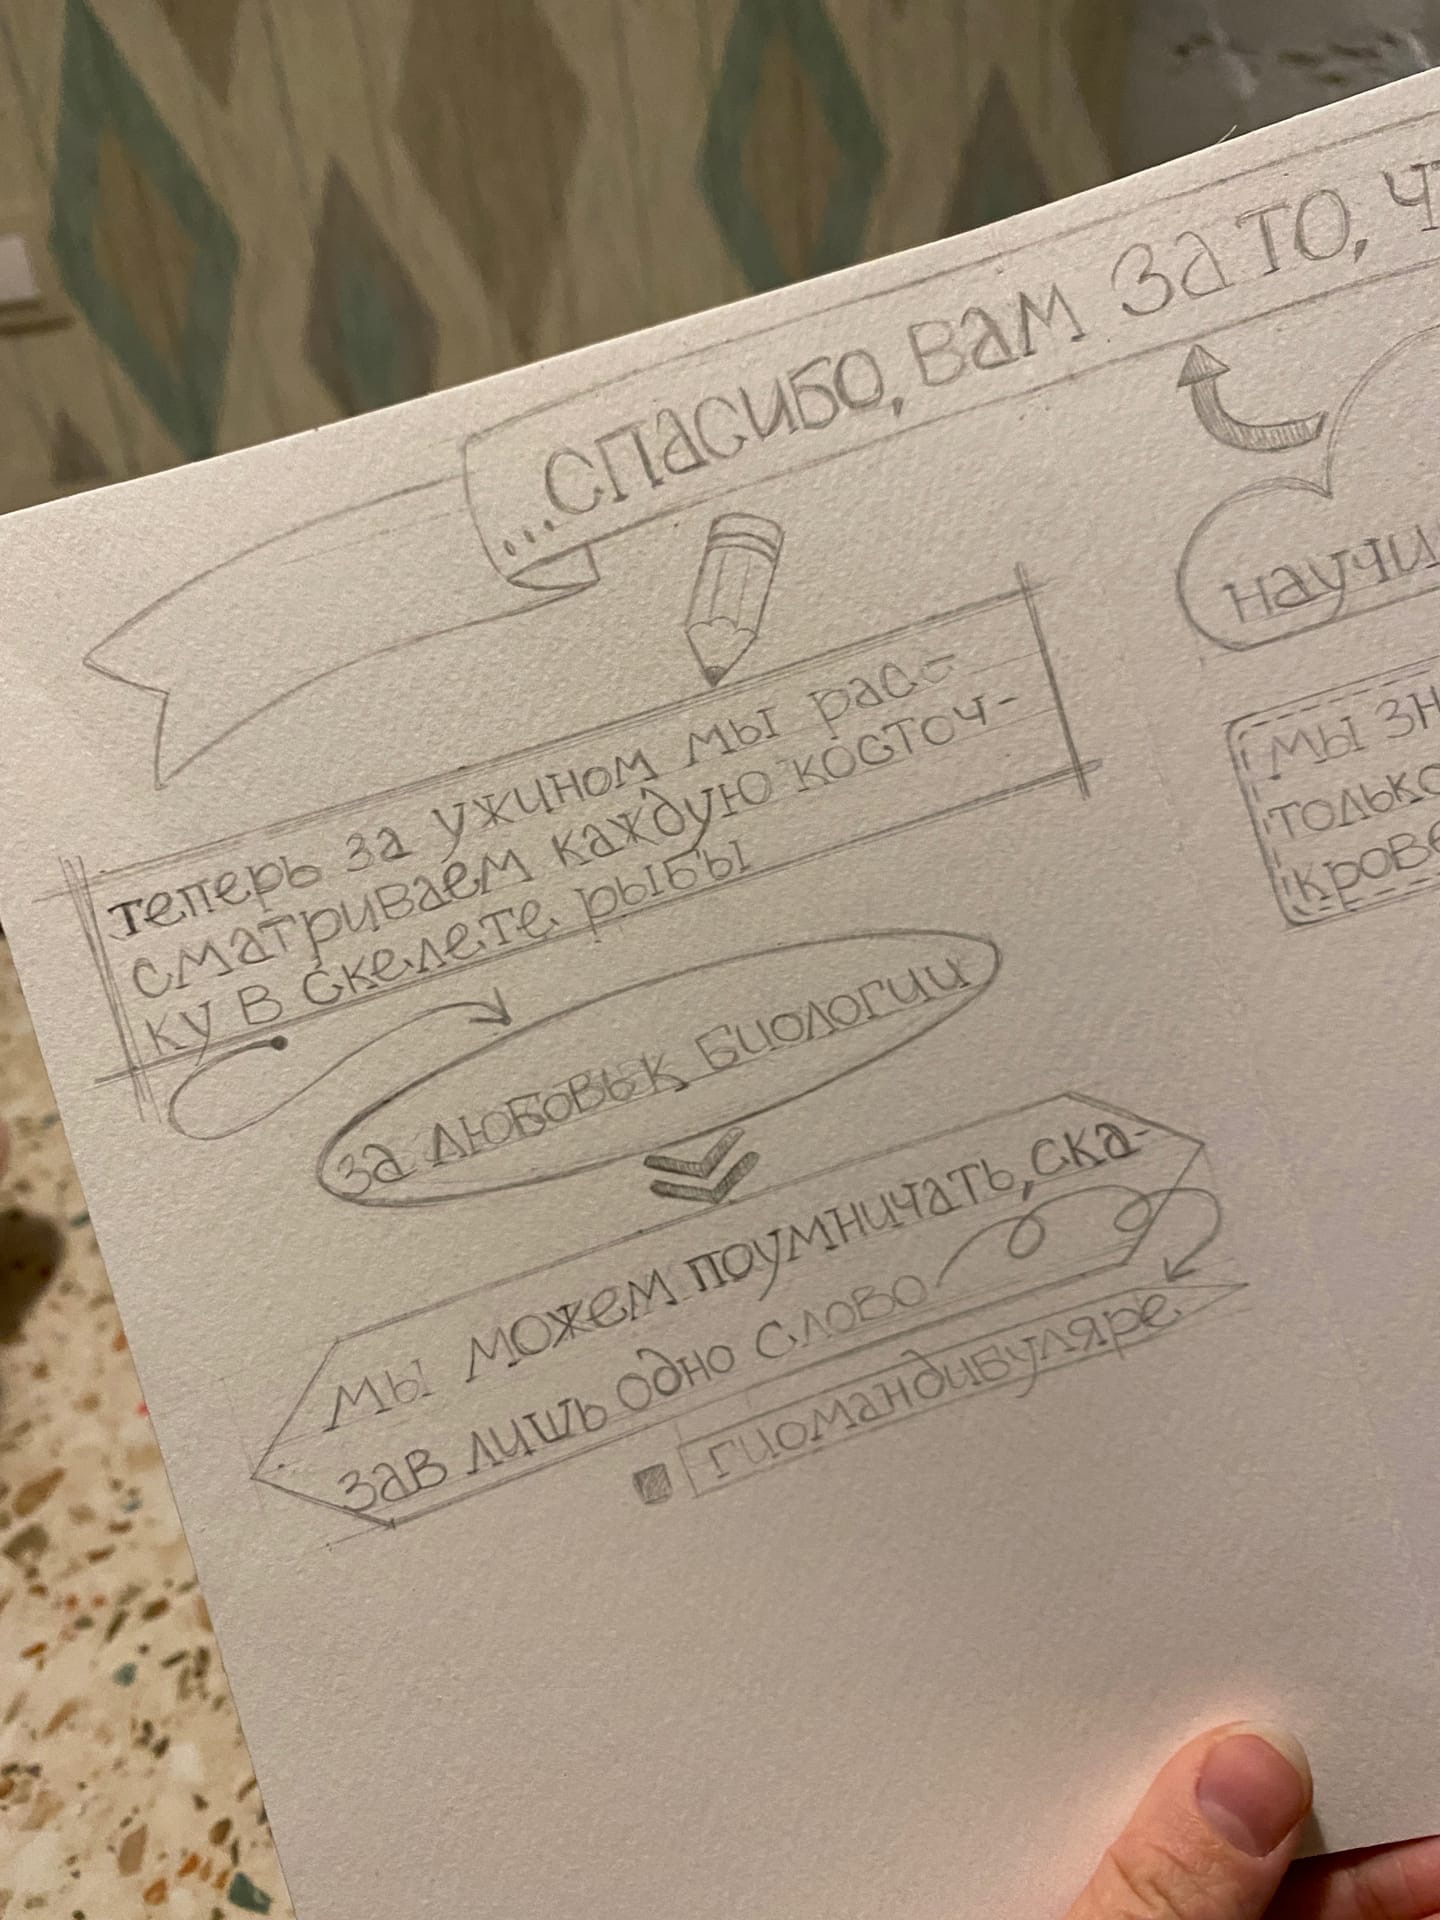 ...СПАСИБО, ВАМ ЗА ТО, Ч
теперь за ужином мы рас-
сматриваем каждую косточ-
ку в скелете рыбы
за любовь к биологии
мы можем поумничать, ска-
зав лишь одно слово
гиомандибуляре
научи
мы зн
только
крове